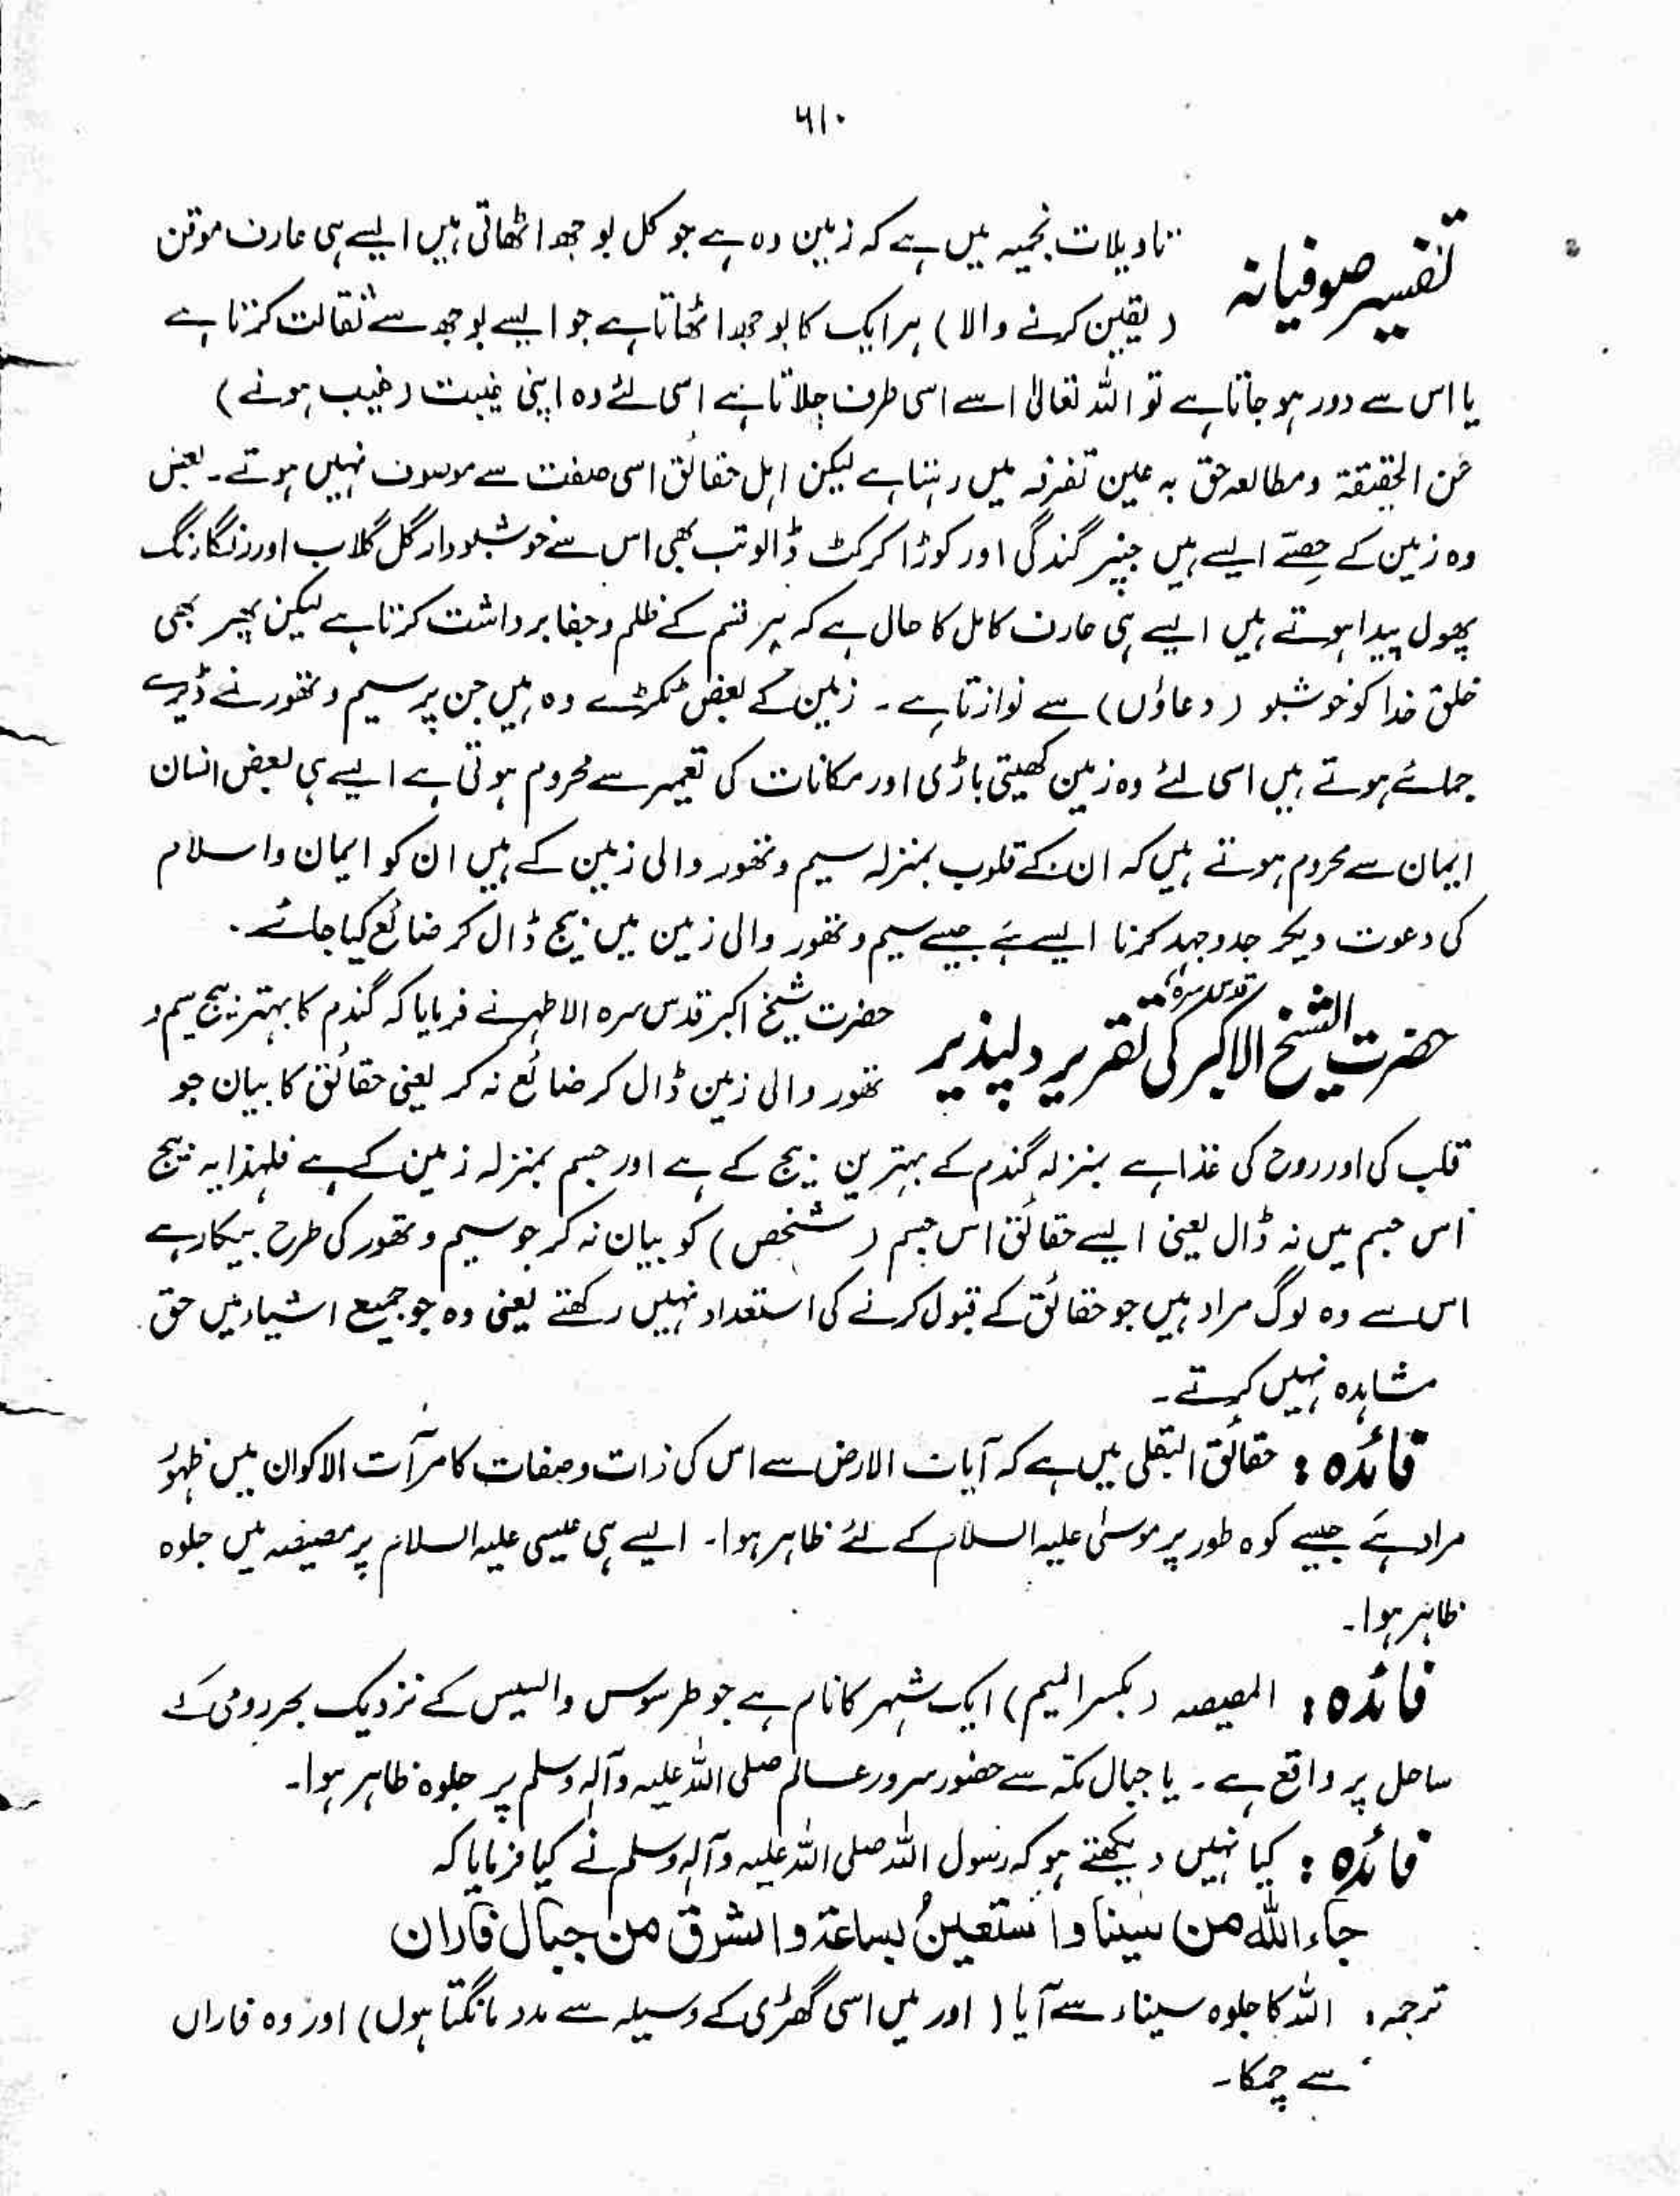 ۶۱۰
تفسیر صوفیانہ
تاویلات نجمیہ میں ہے کہ زمین وہ ہے جو کل بوجھ اٹھاتی ہیں ایسے ہی عارف موقن
(یقین کرنے والا) ہر ایک کا بوجھ اٹھاتا ہے جو ایسے بوجھ سے ثقالت کرتا ہے
یا اس سے دور ہو جاتا ہے تو اللہ تعالیٰ اسے اسی طرف چلاتا ہے اسی لئے وہ اپنی غیبت (غیب ہونے)
عن الحقیقۃ و مطالعہ حق بہ عین تفرقہ میں رہتا ہے لیکن اہل حقائق اسی صفت سے موصوف نہیں ہوتے۔ بعض
وہ زمین کے حصے ایسے ہیں جنپر گندگی اور کوڑا کرکٹ ڈالو تب بھی اس سے خوشبودار گل گلاب اور رنگا رنگ
پھول پیدا ہوتے ہیں ایسے ہی عارف کامل کا حال ہے کہ ہر قسم کے ظلم و جفا برداشت کرتا ہے لیکن پھر بھی
خلق خدا کو خوشبو (دعاؤں) سے نوازتا ہے۔ زمین کے بعض ٹکڑے وہ ہیں جن پر سیم و تھور نے ڈیرے
جمائے ہوتے ہیں اسی لئے وہ زمین کھیتی باڑی اور مکانات کی تعمیر سے محروم ہوتی ہے ایسے ہی بعض انسان
ایمان سے محروم ہوتے ہیں کہ ان کے قلوب بمنزلہ سیم و تھور والی زمین کے ہیں ان کو ایمان و اسلام
کی دعوت دیکر جدوجہد کرنا ایسے ہے جیسے سیم و تھور والی زمین میں بیج ڈال کر ضائع کیا جائے۔
حضرت الشیخ الاکبر قدس سرہ کی تقریر دلپذیر
حضرت شیخ اکبر قدس سرہ الاطہر نے فرمایا کہ گندم کا بہتر بیج سیم و
تھور والی زمین ڈال کر ضائع نہ کر یعنی حقائق کا بیان جو
قلب کی اور روح کی غذا ہے بمنزلہ گندم کے بہترین بیج کے ہے اور جسم بمنزلہ زمین کے ہے فلہذا یہ بیج
اس جسم میں نہ ڈال یعنی ایسے حقائق اس جسم (شخص) کو بیان نہ کر جو سیم و تھور کی طرح بیکار ہے
اس سے وہ لوگ مراد ہیں جو حقائق کے قبول کرنے کی استعداد نہیں رکھتے یعنی وہ جو جمیع اشیاء میں حق
مشاہدہ نہیں کرتے۔
فائدہ : حقائق البقلی میں ہے کہ آیات الارض سے اس کی ذات و صفات کا مرآت الاکوان میں ظہور
مراد ہے جیسے کوہ طور پر موسیٰ علیہ السلام کے لئے ظاہر ہوا۔ ایسے ہی عیسی علیہ السلام پر مصیصہ میں جلوہ
ظاہر ہوا۔
فائدہ : المصیصہ (بکسر المیم) ایک شہر کا نام ہے جو طرسوس والسیس کے نزدیک بحر رومی کے
ساحل پر واقع ہے۔ یا جبال مکہ سے حضور سرور عالم صلی اللہ علیہ وآلہ وسلم پر جلوہ ظاہر ہوا۔
فائدہ : کیا نہیں دیکھتے ہو کہ رسول اللہ صلی اللہ علیہ وآلہ وسلم نے کیا فرمایا کہ
جاء اللہ من سینا و استعین بساعۃ و اشرق من جبال فاران
ترجمہ، اللہ کا جلوہ سیناء سے آیا (اور میں اسی گھڑی کے وسیلہ سے مدد مانگتا ہوں) اور وہ فاراں
سے چمکا۔